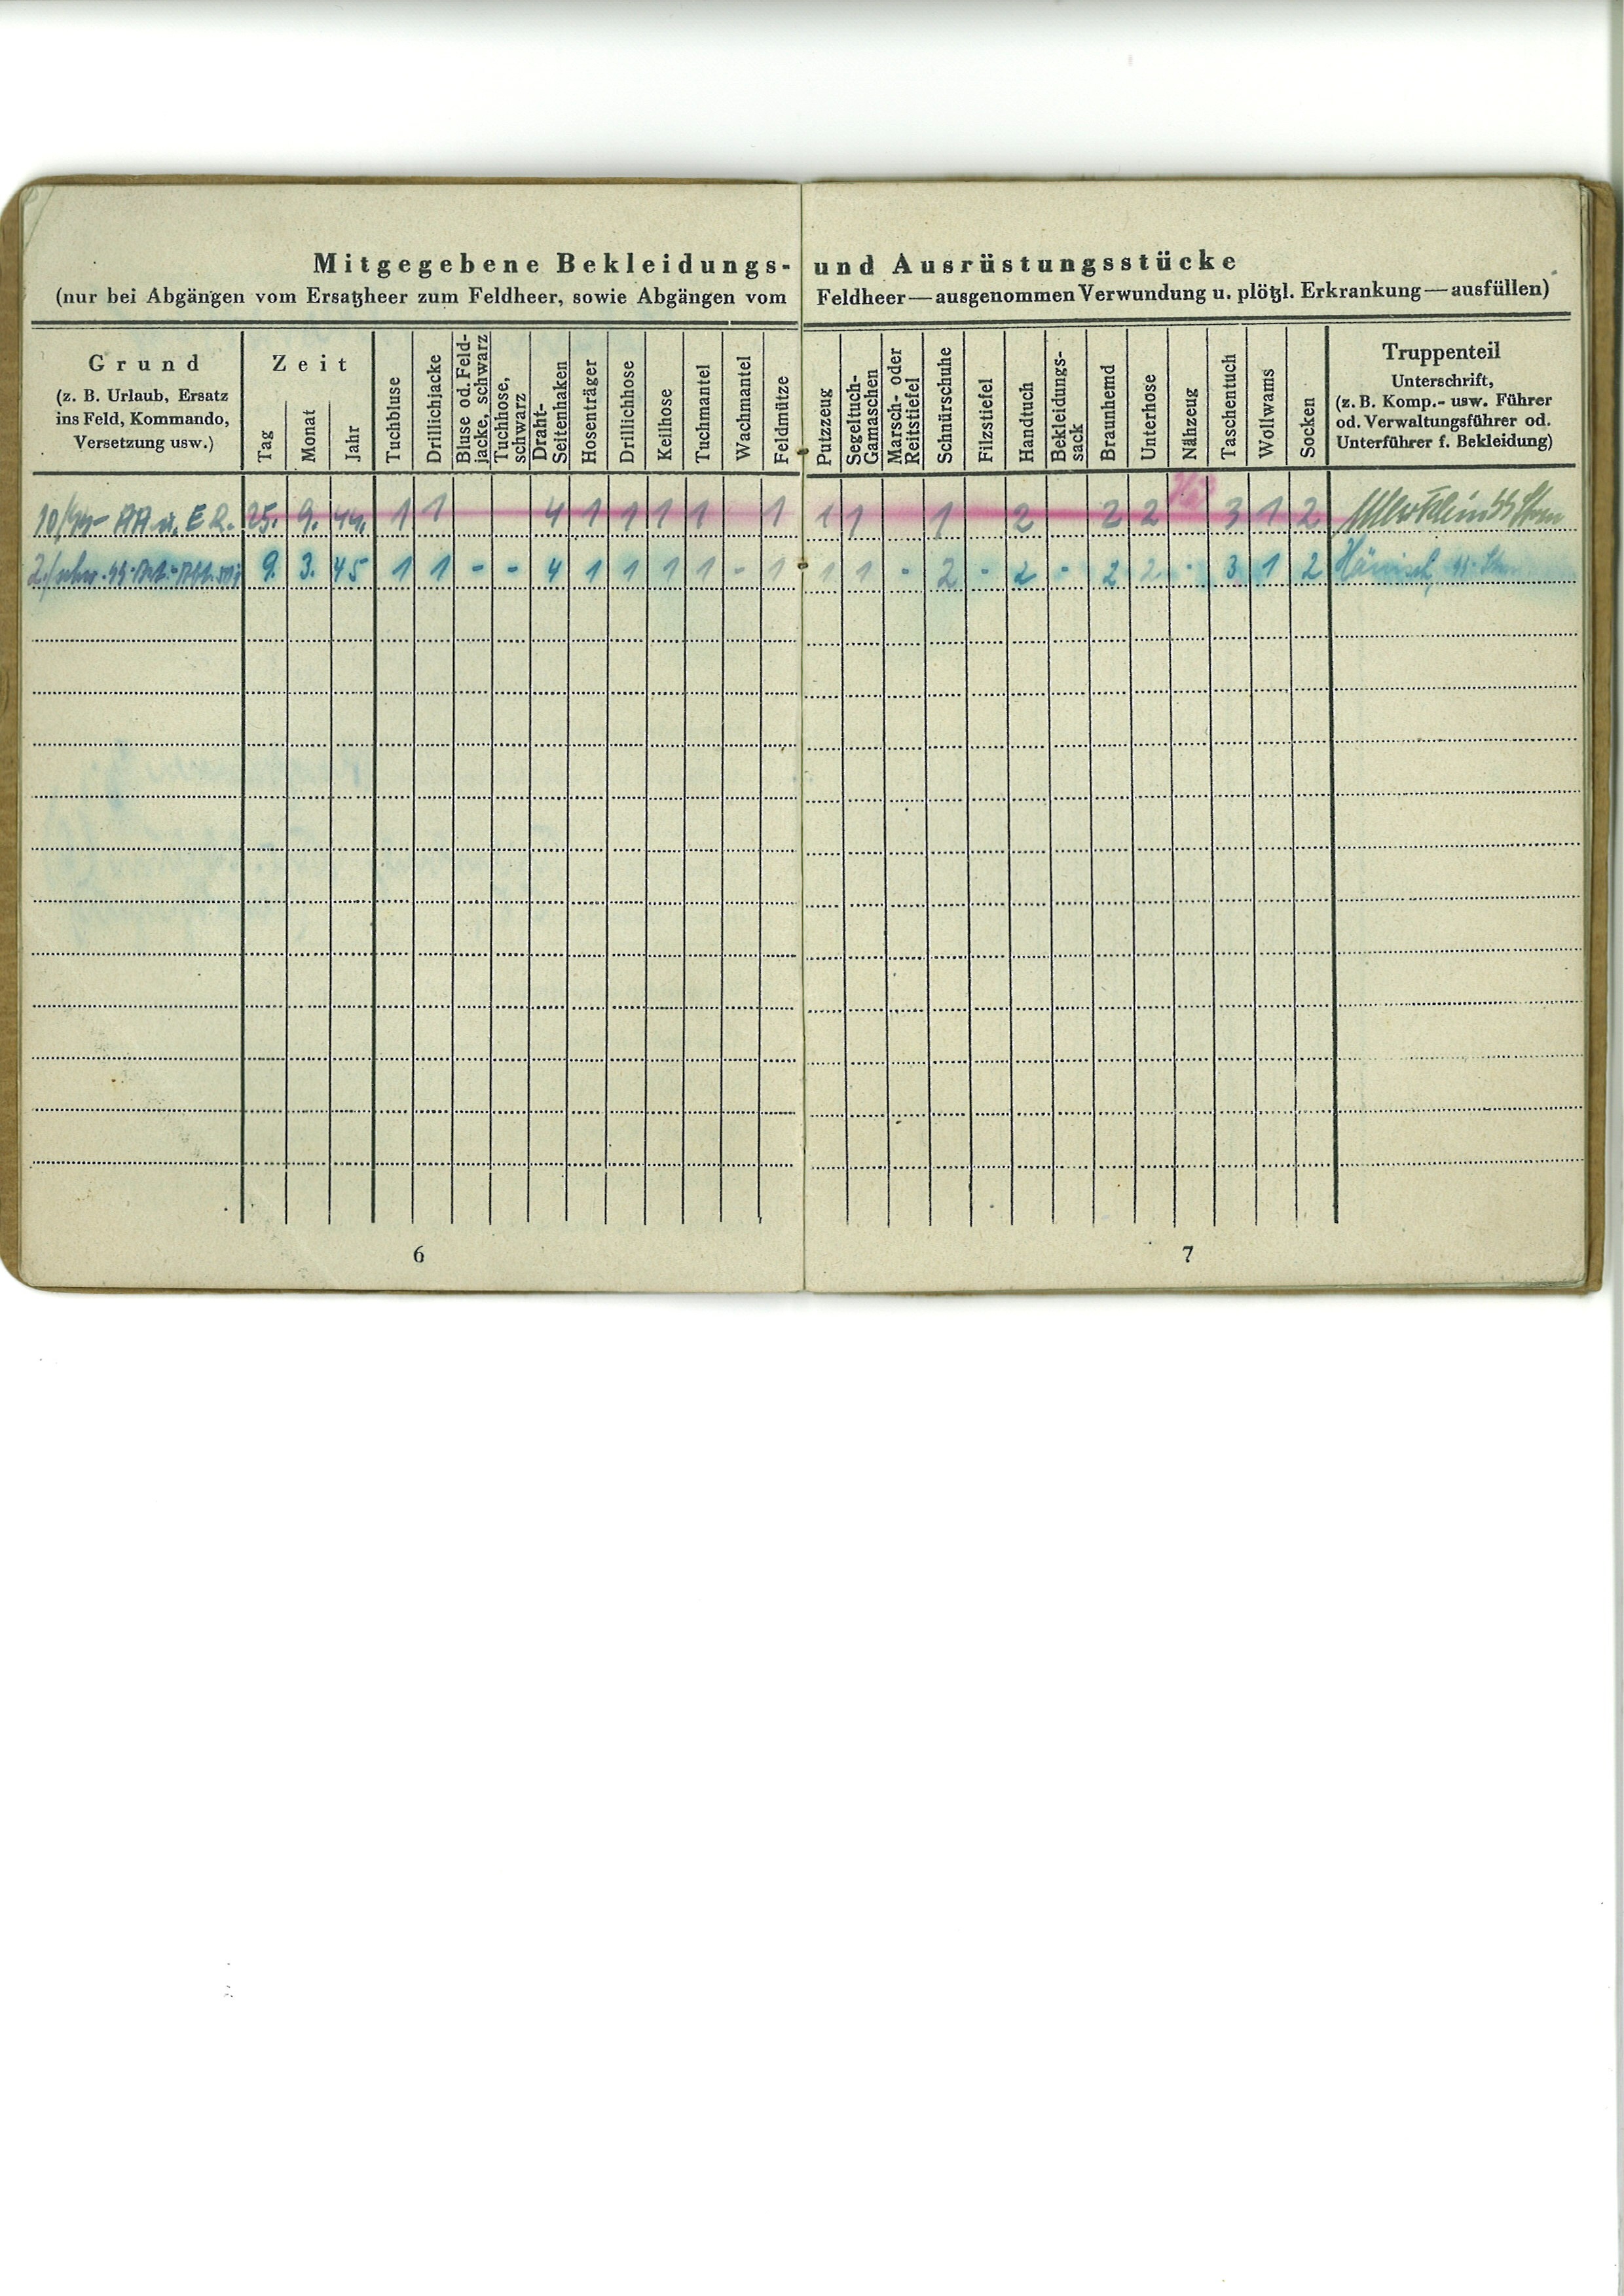 Mitgegebene Bekleidungs- und Ausrüstungsstücke
(nur bei Abgängen vom Ersatzheer zum Feldheer, sowie Abgängen vom Feldheer—ausgenommen Verwundung u. plötzl. Erkrankung—ausfüllen)
Grund
(z. B. Urlaub, Ersatz
ins Feld, Kommando,
Versetzung usw.)
Zeit
Tag
Monat
Jahr
Tuchbluse
Drillichjacke
Bluse od. Feld-
jacke, schwarz
Tuchhose,
schwarz
Draht-
Seitenhaken
Hosenträger
Drillichhose
Keilhose
Tuchmantel
Wachmantel
Feldmütze
Putzzeug
Segeltuch-
Gamaschen
Marsch- oder
Reitstiefel
Schnürschuhe
Filzstiefel
Handtuch
Bekleidungs-
sack
Braunhemd
Unterhose
Nähzeug
Taschentuch
Wollwams
Socken
Truppenteil
Unterschrift,
(z. B. Komp.- usw. Führer
od. Verwaltungsführer od.
Unterführer f. Bekleidung)
10/SS- AA u. E R. 25. 9. 44. 1 1 4 1 1 1 1 1 1 1 1 2 2 2 3 1 2
2./schw. SS-Art.-Abt. 9. 3. 45 1 1 - - 4 1 1 1 1 - 1 1 1 - 2 - 2 - 2 2 - 3 1 2
6
7